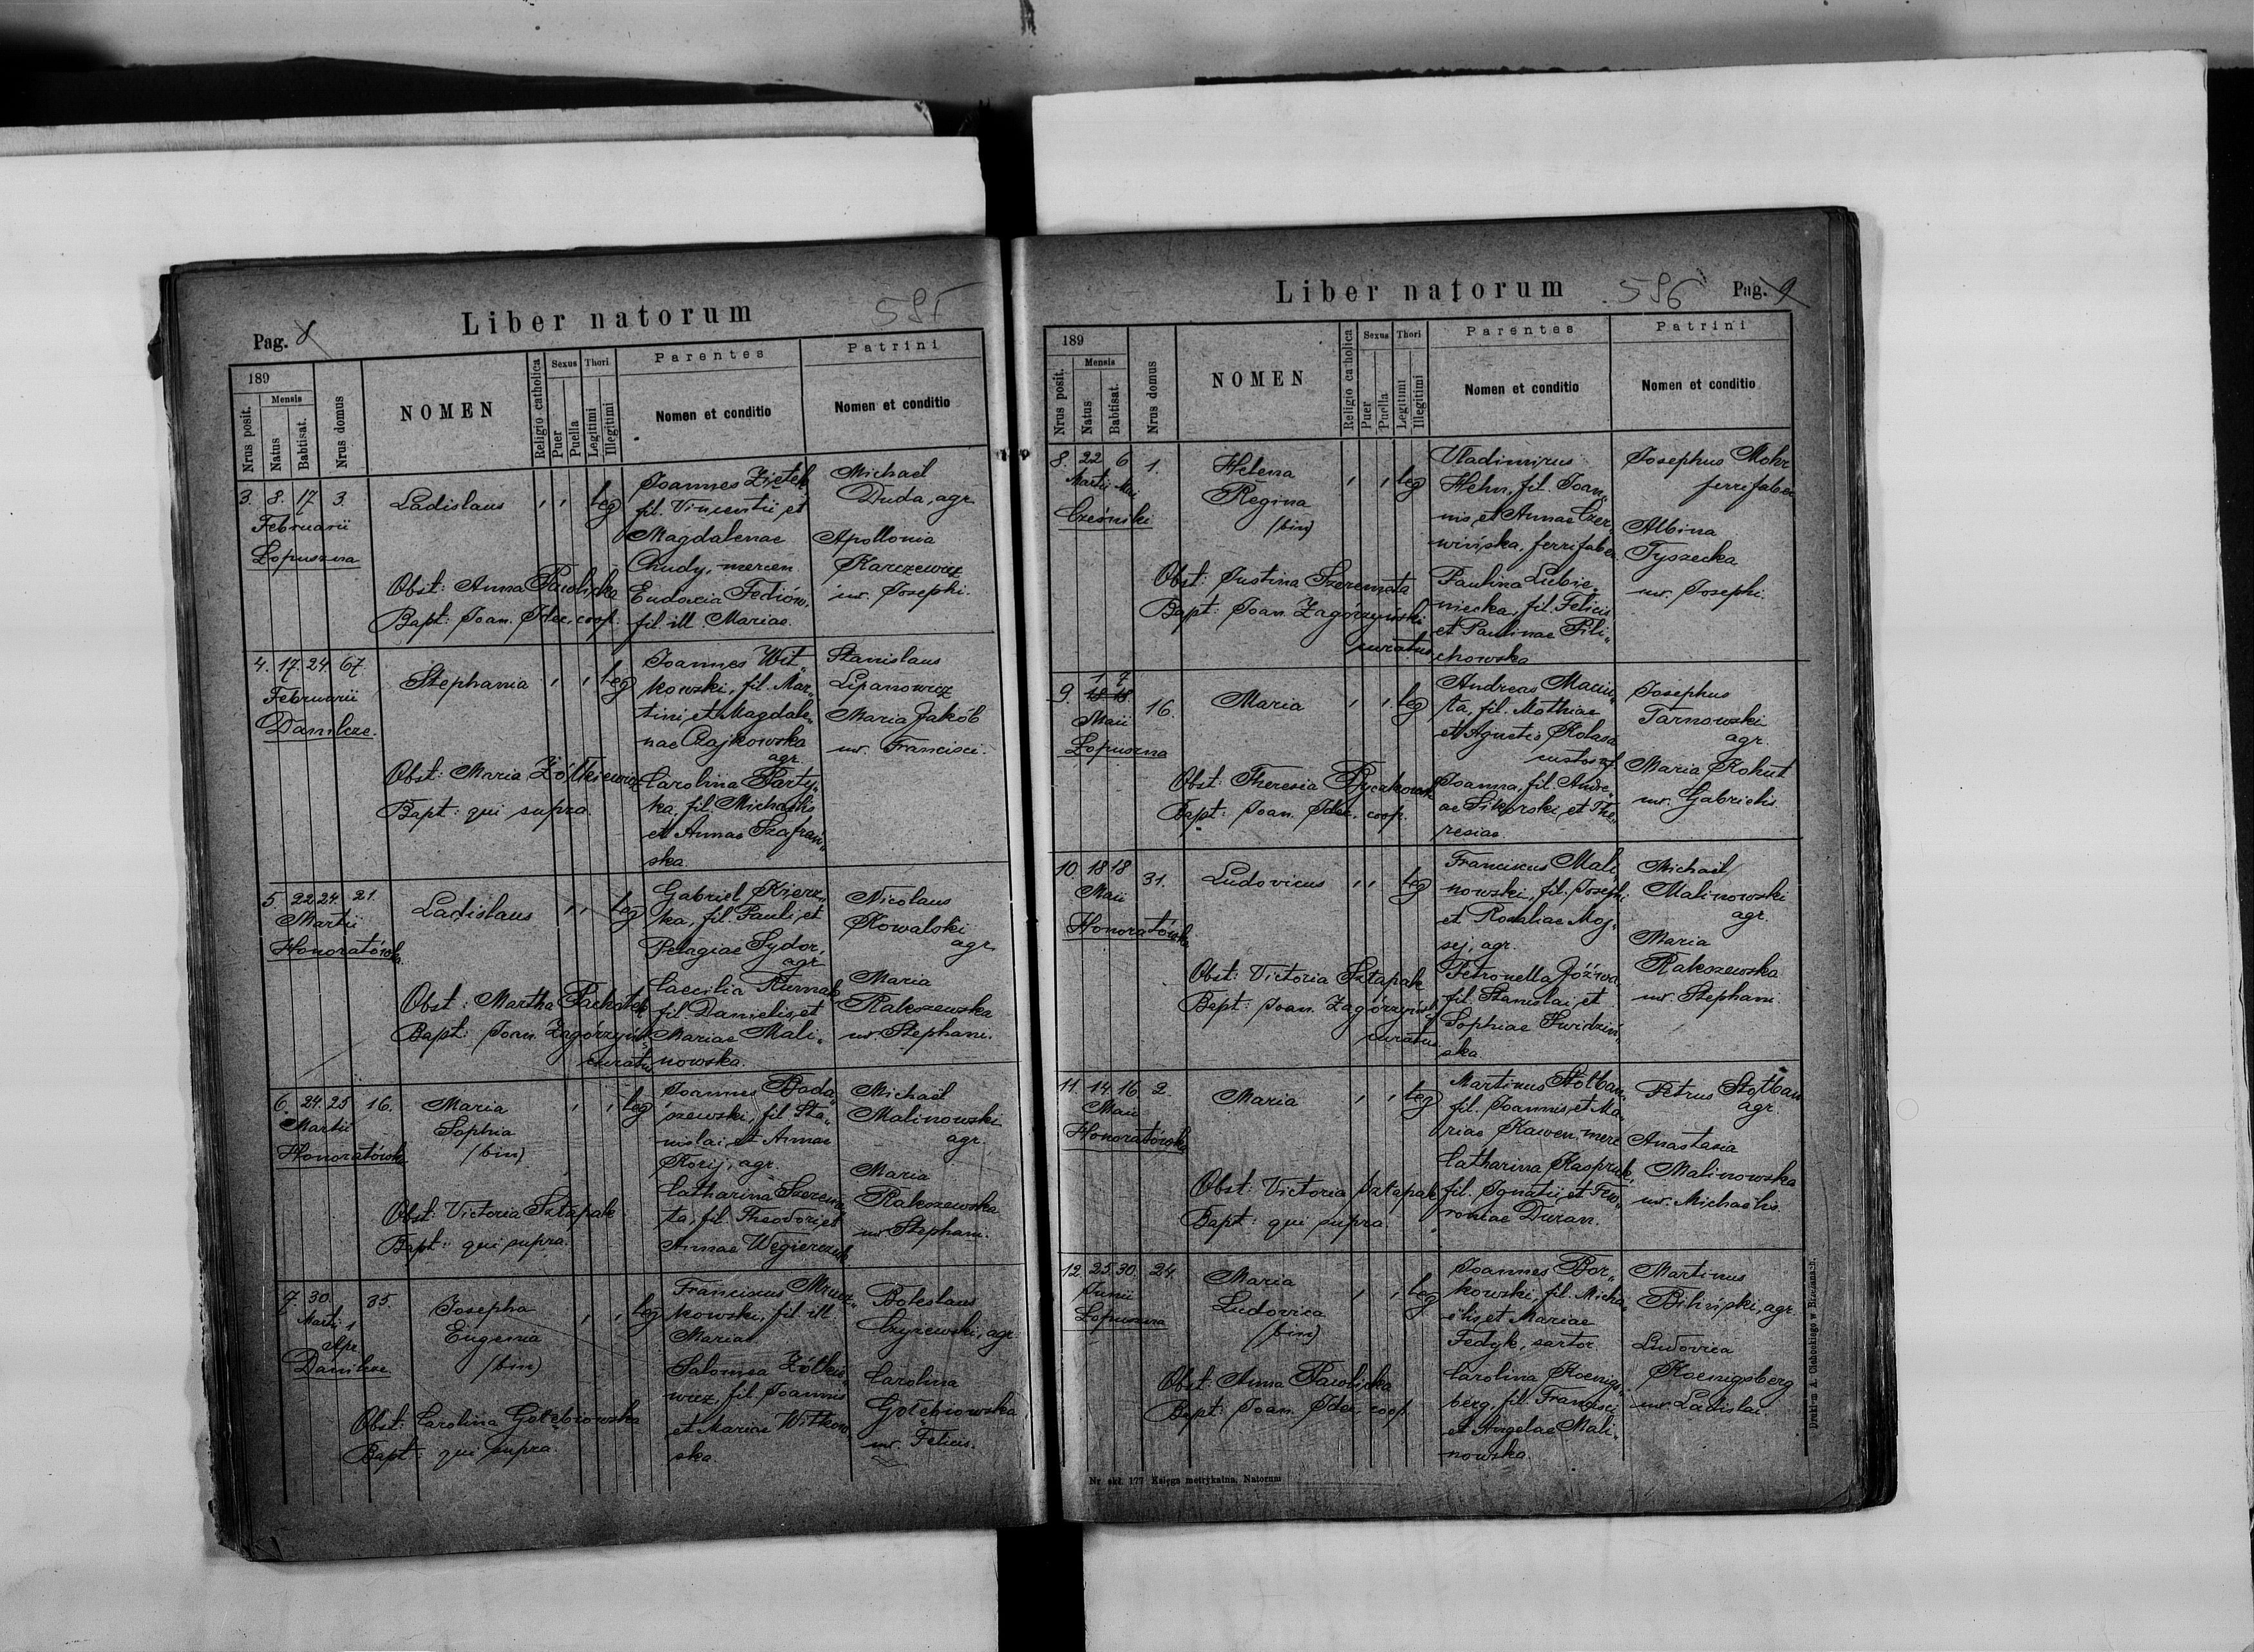 Liber natorum
Pag. 8
189
Nrus posit.
Mensis
Natus
Babtisat.
Nrus domus
NOMEN
Religio catholica
Sexus
Puer
Puella
Thori
Legitimi
Illegitimi
Parentes
Nomen et conditio
Patrini
Nomen et conditio
3. 8. 17 3.
Februarii
Łopuszna
Ladislaus
leg
Obst: Anna Pawlicka
Bapt: Joan. Idec, coop.
Joannes Ziętek
fil. Vincentii et
Magdalenae
Chudy, mercen.
Eudoxia Fediów,
fil. ill. Mariae.
Michaël
Duda, agr.
Apollonia
Karczewicz
ux. Josephi.
4. 17. 24. 67.
Februarii
Danilcze.
Stephania
leg
Obst: Maria Żółkiewicz
Bapt: qui supra.
Joannes Wit„
kowski, fil. Mar„
tini, et Magdale„
nae Czajkowska
agr.
Carolina Party„
ka, fil. Michaëlis
et Annae Szafrań„
ska.
Stanislaus
Lipanowicz
Maria Jakób
ux. Francisci.
5. 22 24. 21.
Martii
Honoratówka.
Ladislaus
leg
Obst: Martha Pachołek
Bapt: Joan. Zagórzyński
curatus
Gabriel Kierz„
ka, fil. Pauli, et
Pelagiae Sydor,
agr.
Caecilia Kurnak
fil. Danielis, et
Mariae Mali„
nowska.
Nicolaus
Kowalski
agr.
Maria
Rakoszewska
ux. Stephani.
6. 24. 25 16.
Martii
Honoratówka
Maria
Sophia
(bin)
leg
Obst: Victoria Sztapak
Bapt: qui supra.
Joannes Boda„
szewski, fil. Sta„
nislai, et Annae
Korij, agr.
Catharina Szereme„
ta, fil. Theodori et
Annae Węgierczuk
Michaël
Malinowski
agr.
Maria
Rakoszewska
ux Stephani.
7. 30. 35.
Martii 1
Apr.
Danilcze
Josepha
Eugenia
(bin)
leg
Obst: Carolina Gołębiowska
Bapt: qui supra.
Franciscus
kowski, fil. ill.
Mariae
Salomea Żółkie„
wicz, fil. Joannis
et Mariae Witkow„
ska.
Boleslaus
Czyżewski, agr.
Carolina
Gołębiowska
ux. Felicis.
Liber natorum
586
Pag. 9
189
Nrus posit.
Mensis
Natus
Babtisat.
Nrus domus
NOMEN
Religio catholica
Sexus
Puer
Puella
Thori
Legitimi
Illegitimi
Parentes
Nomen et conditio
Patrini
Nomen et conditio
8. 22 6 1.
Martii Mai
Cześniki
Helena
Regina
(bin)
leg
Obst: Justina Szeremeta
Bapt: Joan. Zagórzyński
curatus
Vladimirus
Hehn, fil. Joan„
nis, et Annae Czer„
wińska, ferrifaber.
Paulina Lubie„
niecka, fil. Felicis
et Paulinae Pili„
chowska
Josephus Mohr
ferrifaber
Albina
Tyszecka
ux. Josephi.
1 7
9. 18 18 16.
Maii
Łopuszna
Maria
leg
Obst: Theresia
Bapt: Joan. Idec, coop.
Andreas Maciu„
ta, fil. Mathiae
et Agnetis Kolasa
Joanna, fil. Andre„
ae Sikorski, et The„
resiae.
Josephus
Tarnowski
agr.
Maria Kohut
ux. Gabrielis.
10. 18 18 31.
Maii
Honoratówka
Ludovicus
leg
Obst: Victoria Sztapak
Bapt: Joan. Zagórzyński
curatus.
Franciscus Mali„
nowski, fil. Josephi
et Rosaliae Moj„
sej, agr.
Petronella Jóźwa
fil. Stanislai, et
Sophiae Swidziń„
ska.
Michaël
Malinowski
agr.
Maria
Rakoszewska
ux. Stephani.
11. 14. 16. 2.
Maii
Honoratówka
Maria
leg
Obst: Victoria Sztapak
Bapt: qui supra.
Martinus Stołban„
fil. Joannis, et Ma„
riae Kawen, merc
Catharina Kaspruk,
fil. Ignatii, et Few„
roniae Duran.
Petrus Stołban
agr.
Anastasia
Malinowska
ux. Michaëlis
12. 25. 30. 24.
Junii
Łopuszna
Maria
Ludovica
(bin)
leg
Obst: Anna Pawlicka
Bapt: Joan. Idec, coop.
Joannes Bor„
kowski, fil. Micha„
ëlis, et Mariae
Fedyk, sartor.
Carolina Koenigs„
berg, fil. Francisci
et Angelae Mali„
nowska.
Martinus
Biliński, agr.
Ludovica
Koenigsberg
ux. Ladislai.
Nr. skł. 177. Księga metrykalna, Natorum